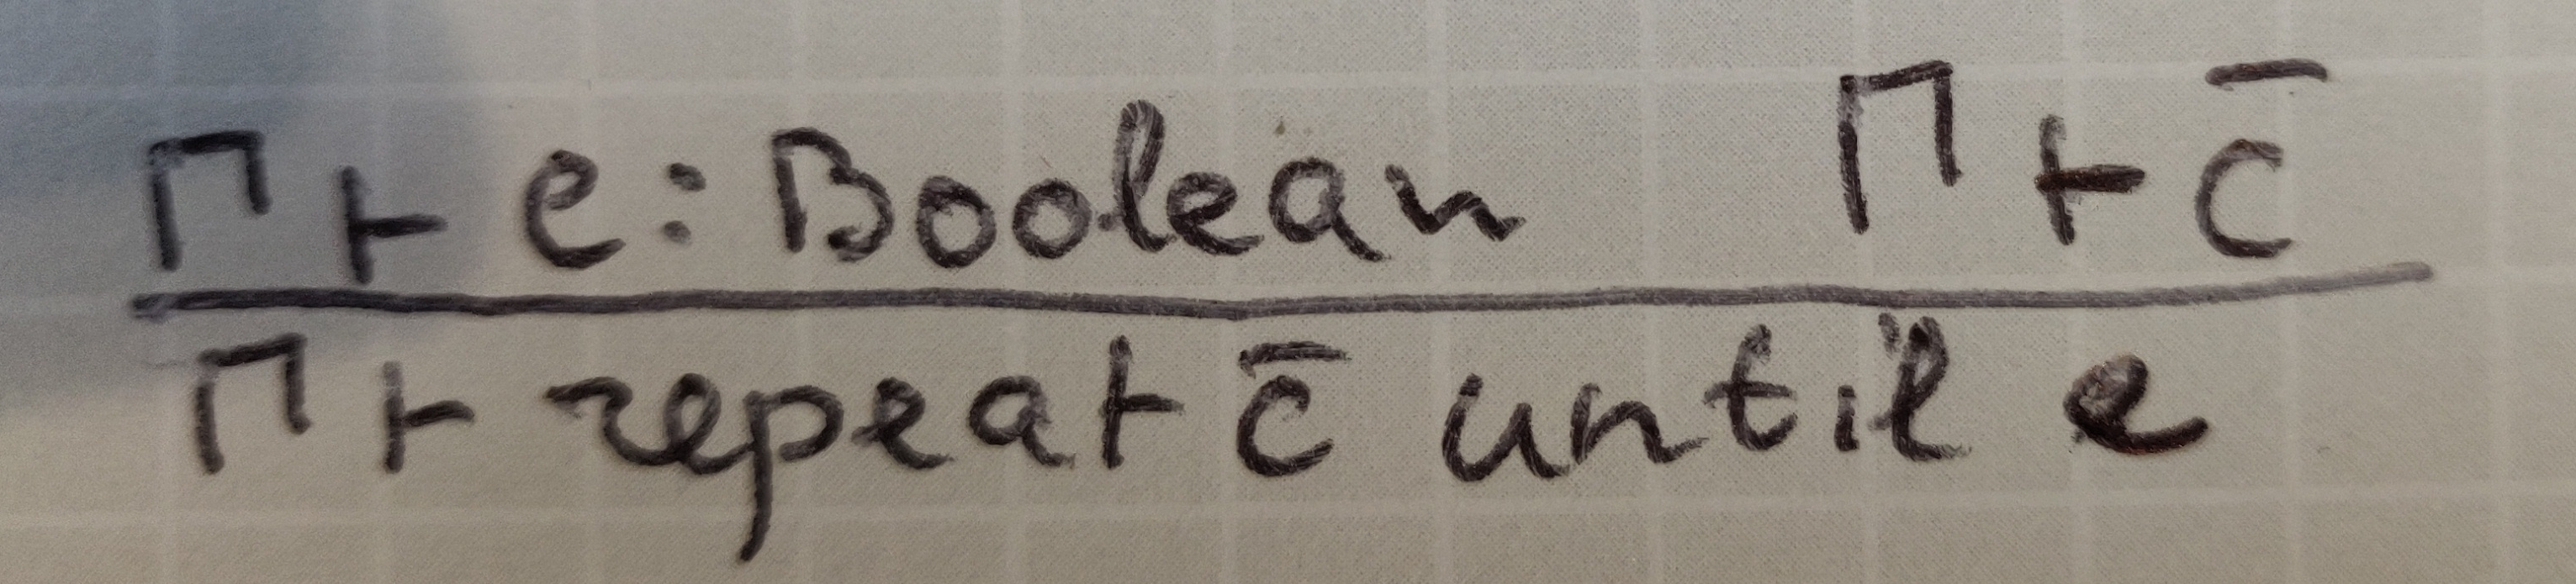 Γ ⊢ e : Boolean Γ ⊢ c̄
Γ ⊢ repeat c̄ until e